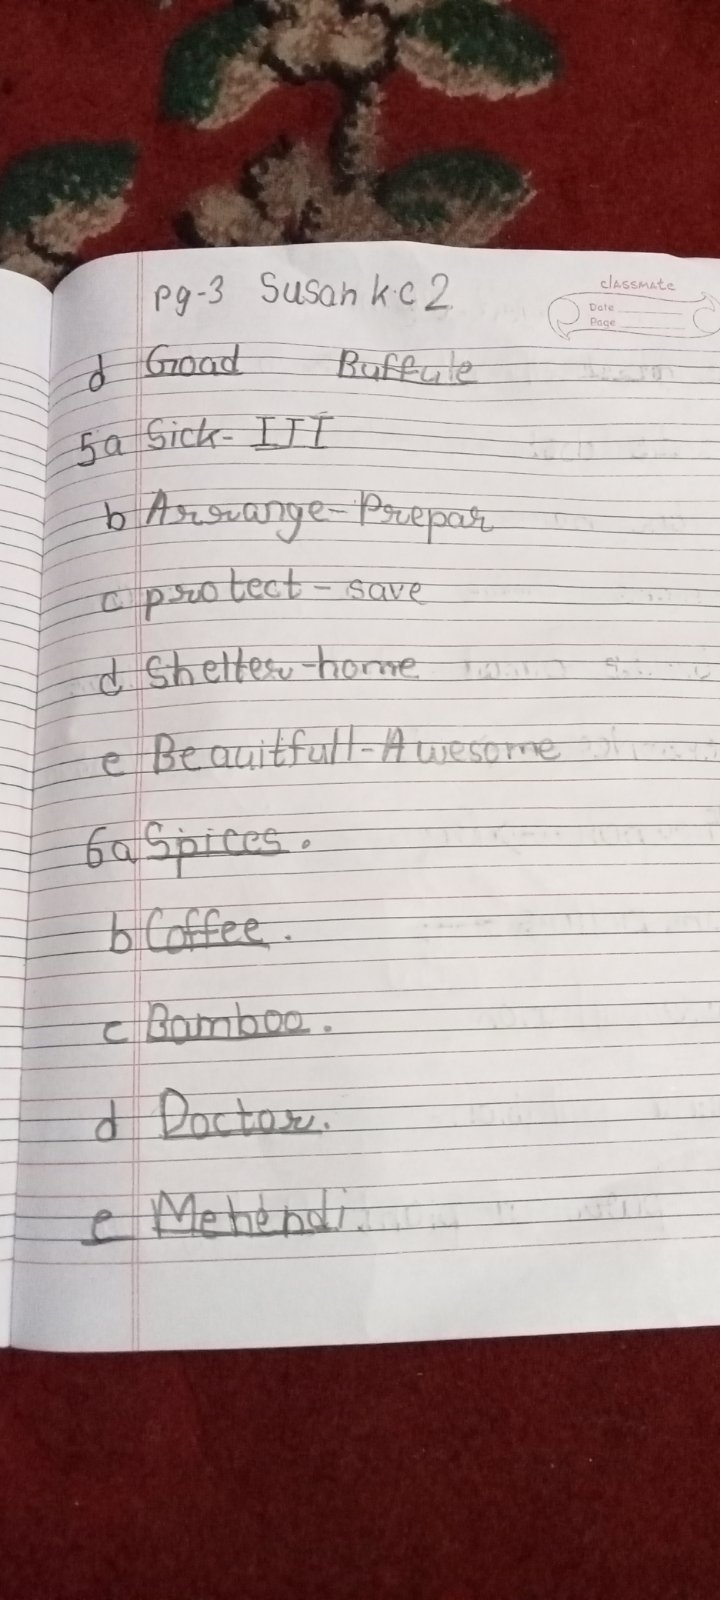 pg-3 Susan k.c 2
classmate
Date
Page
d Goad Buffule
5a Sick- III
b Arrange- Prepar
c protect - save
d Shelter -home
e Beauitfull-Awesome
6a Spices.
b Coffee.
c Bamboo.
d Doctor.
e Mehendi.